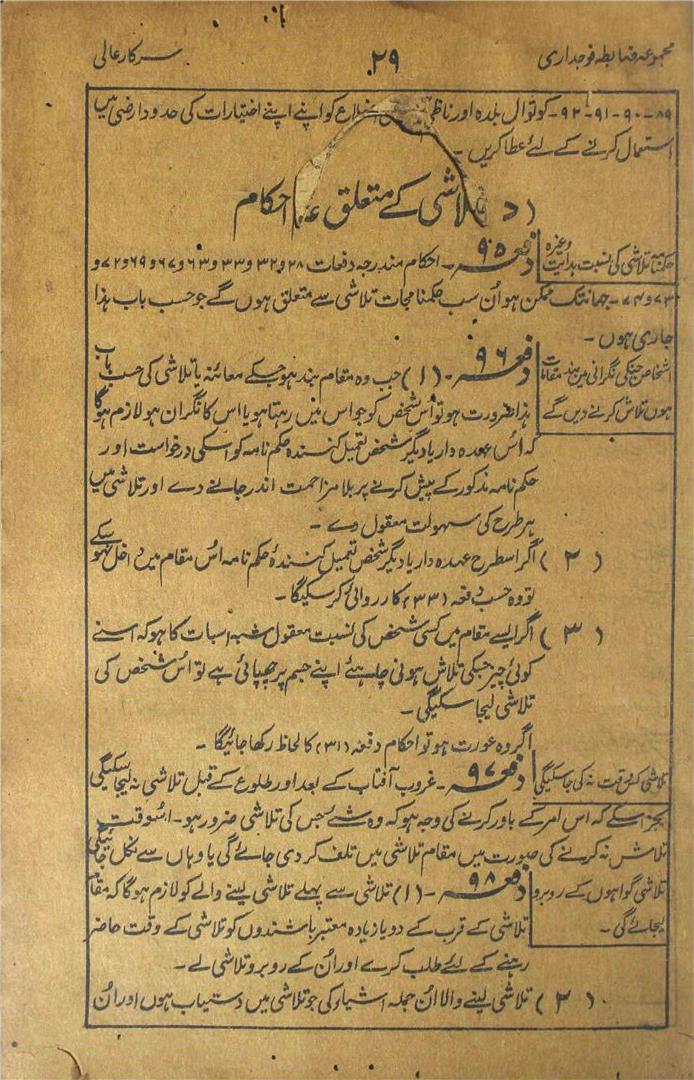 مجموعہ ضابطہ فوجداری
۲۹
سرکار عالی
۸۹-۹۰-۹۱-۹۲-کوتوال بلدہ اور اضلاع کو اپنے اپنے اختیارات کی حدود ارضی میں
استعمال کرنے کے لئے عطا کریں ۔
( د ) تلاشی کے متعلق عام احکام
حکمنامہ تلاشی کی نسبت ہدایت وغیرہ
دفعہ ۹۵ ۔ احکام مندرجہ دفعات ۲۸ و ۳۲ و ۳۳ و ۶۳ و ۶۷ و ۶۹ و ۷۲ و
۷۳ و ۷۴ ۔ جہانتک ممکن ہو اُن سب حکمنامجات تلاشی سے متعلق ہوں گے جو حسب باب ہذا
جاری ہوں ۔
اشخاص جنکی نگرانی میں بند مقامات
ہوں تلاش کرنے دیں گے
دفعہ ۹۶ ۔ (۱) جب وہ مقام بند ہو جسکے معائنہ یا تلاشی کی حسب باب
ہذا ضرورت ہو تو اُس شخص کو جو اس میں رہتا ہو یا اس کا نگران ہو لازم ہوگا
کہ اُس عہدہ دار یا دیگر شخص تعمیل کنندہ حکم نامہ کو اسکی درخواست اور
حکم نامہ مذکور کے پیش کرنے پر بلا مزاحمت اندر جانے دے اور تلاشی میں
ہر طرح کی سہولت معقول دے ۔
( ۲ ) اگر اسطرح عہدہ دار یا دیگر شخص تعمیل کنندۂ حکم نامہ اُس مقام میں داخل نہو سکے
تو وہ حسب دفعہ (۳۳) کارروائی کرسکیگا ۔
( ۳ ) اگر ایسے مقام میں کسی شخص کی نسبت معقول شبہ اسبات کا ہو کہ اسنے
کوئی چیز جسکی تلاش ہونی چاہئے اپنے جسم پر چھپائی ہے تو اُس شخص کی
تلاشی لیجا سکیگی ۔
اگر وہ عورت ہو تو احکام دفعہ (۳۱) کا لحاظ رکھا جائیگا ۔
تلاشی کس وقت نہ کی جا سکیگی
دفعہ ۹۷ ۔ غروب آفتاب کے بعد اور طلوع کے قبل تلاشی نہ لیجا سکیگی
بجز اسکے کہ اس امر کے باور کرنے کی وجہ ہو کہ وہ شے جس کی تلاشی ضرور ہو ۔ اسوقت
تلاش نہ کرنے کی صورت میں مقام تلاشی میں تلف کر دی جائے گی یا وہاں سے نکل جائیگی
تلاشی گواہوں کے روبرو
لیجائے گی ۔
دفعہ ۹۸ ۔ (۱) تلاشی سے پہلے تلاشی لینے والے کو لازم ہوگا کہ مقام
تلاشی کے قرب کے دو یا زیادہ معتبر باشندوں کو تلاشی کے وقت حاضر
رہنے کے لئے طلب کرے اور اُن کے روبرو تلاشی لے ۔
( ۲ ) تلاشی لینے والا اُن جملہ اشیاء کی جو تلاشی میں دستیاب ہوں اور اُن